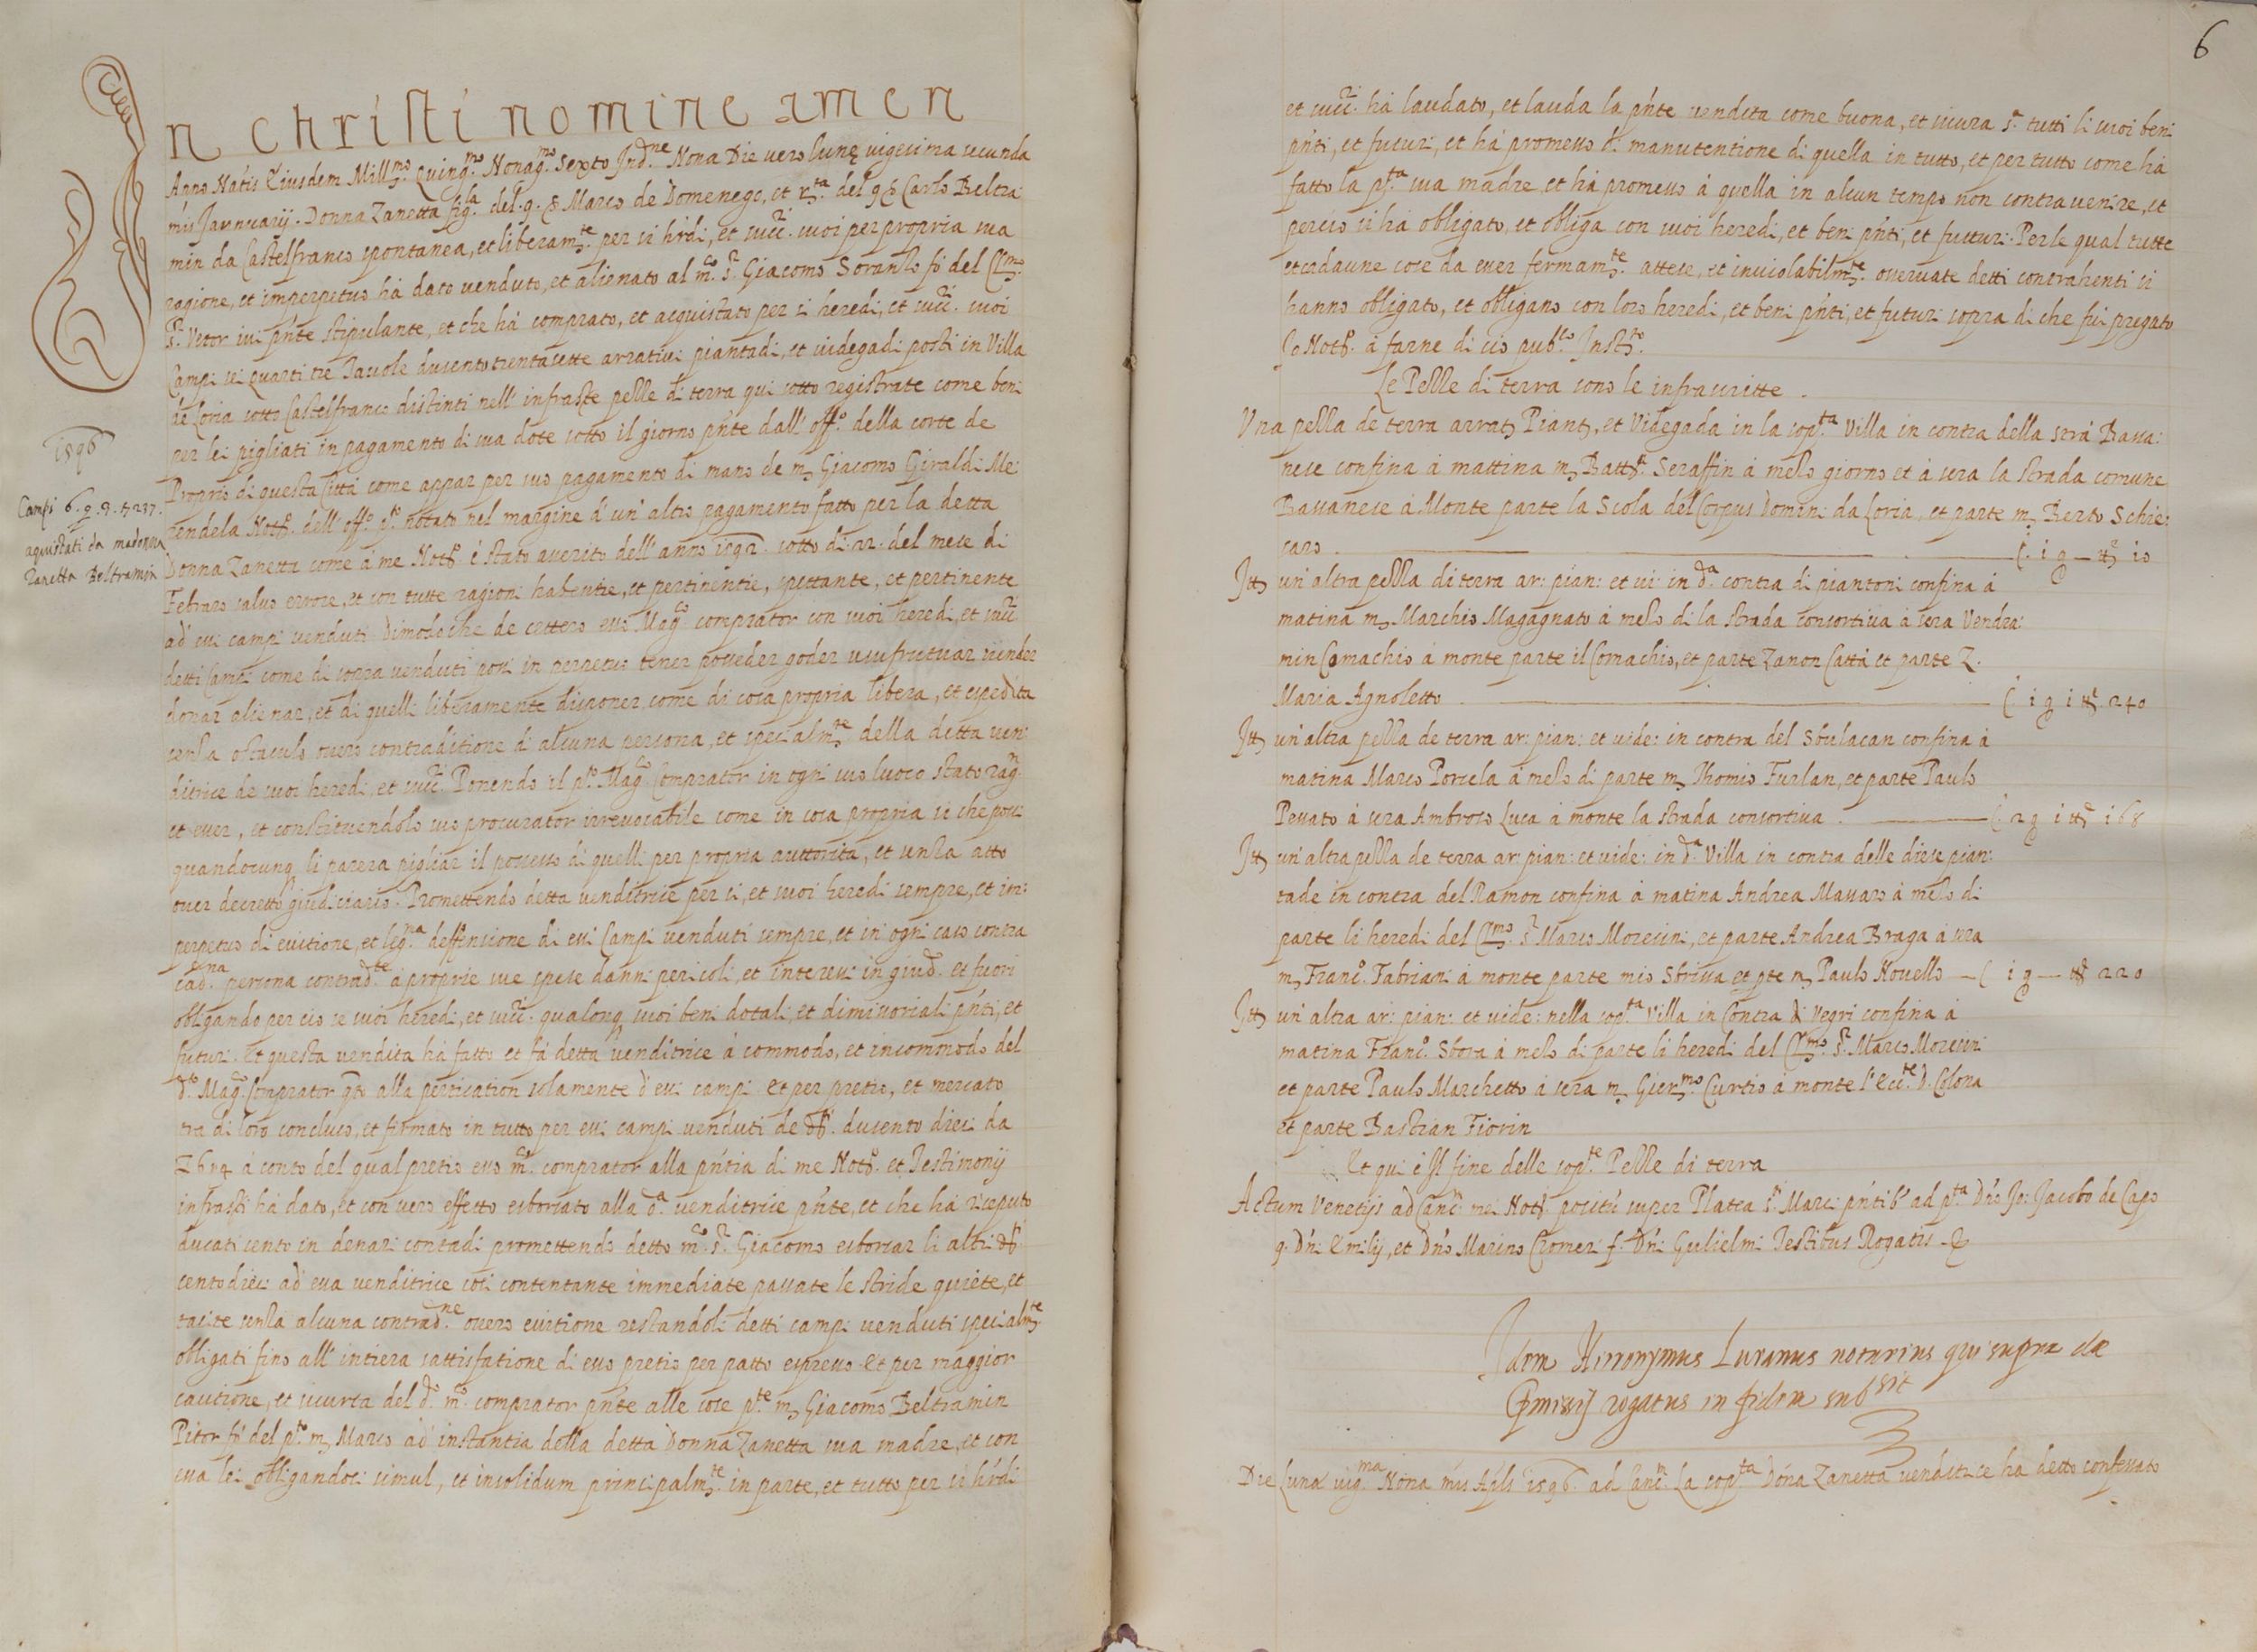 In Christi nomine amen
Anno Natis Eiusdem Mill.mo Quing.mo Nonag.mo Sexto Ind.ne Nona Die vero lunę vigesima secunda
mis Jannuarij. Donna Zanetta fig.la del q. s Marco de Domenego, et r.ta del q s Carlo Beltra
min da Castelfranco spontanea, et liberam.te per si hrdi, et succ.ri suoi per propria sua
ragione, et imperpetuo hà dato venduto, et alienato al m.co s.r Giacomo Soranzo fò del Cl.mo
s.r Vetor ivi pñte stipulante, et che hà comprato, et acquistato per si heredi, et succ.ri suoi
Campi sei quarti tre Tavole dusento trentasette arrativi piantadi, et videgadi posti in Villa
de Loria sotto Castelfranco distinti nell' infraste pezze di terra qui sotto registrate come beni
per lei pigliati in pagamento di sua dote sotto il giorno pñte dall' off.o della corte de
Proprio di questa Città come appar per suo pagamento di mano de m Giacomo Giraldi Me:
1596
Campi 6. q. 3. t 237.
aquistati da madonna
Zanetta Beltramin
zendela Not.o dell' off.o p.to notato nel margine d' un' altro pagamento fatto per la detta
Donna Zanetta come à me Not.o è stato averito dell' anno 1592. sotto di. 22. del mese di
Febraro salvo errore, et con tutte ragioni habentie, et pertinentie, spettante, et pertinente
ad essi campi venduti Dimodoche de cettero esso Mag.co comprator con suoi heredi, et succ.ri
detti Campi come di sopra venduti possi in perpetuo tener posseder goder usufrutuar vender
donar alienar, et di quelli liberamente disponer come di cosa propria libera, et espedita
senza ostaculo overo contraditione di alcuna persona, et specialm.te della detta ven:
ditrice de suoi heredi, et succ.ri Ponendo il p.to Mag.co Comprator in ogni suo luoco stato rag.n
et esser, et constituendolo suo procurator irrevocabile come in cosa propria si che possi
quandocunq li parera pigliar il possesso di quelli per propria auttorità, et senza atto
over decretto giudiciario. Promettendo detta venditrice per si, et suoi heredi sempre, et im:
perpetuo di evitione, et leg.ma deffensione di essi Campi venduti sempre, et in ogni caso contra
cad.na persona contrad.te à proprie sue spese danni pericoli, et interessi in giud.o et fuori
obligando per ciò se suoi heredi, et succ.ri qualonq suoi beni dotali, et dimissoriali pñti, et
futuri. Et questa vendita hà fatto et fà detta venditrice à commodo, et incommodo del
d.o Mag.co Comprator q.to alla pertication solamente d' essi campi Et per pretio, et mercato
tra di loro concluso, et firmato in tutto per essi campi venduti de d. dusento dieci da
£ 6 s 4 à conto del qual pretio esso m.co comprator alla pñtia di me Not.o et Testimonij
infrasti hà dato, et con vero effetto esborsato alla d.a venditrice pñte, et che hà riceputo
ducati cento in denari contadi promettendo detto m.co s.r Giacomo esborsar li altri d.
cento dieci ad essa venditrice così contentante immediate passate le stride quiete, et
tacite senza alcuna contrad.ne overo evitione restandoli detti campi venduti specialm.te
obligati fino all' intiera sattisfatione di esso pretio per patto espresso Et per maggior
cautione, et sicurtà del d.o m.co comprator pñte alle cose p.te m Giacomo Beltramin
Pitor fò del p.to m Marco ad' instantia della detta Donna Zanetta sua madre, et con
essa lei obligandosi simul, et insolidum principalm.te in parte, et tutto per sè hrdi
6
et succ.ri hà laudato, et lauda la pñte vendita come buona, et sicura s.a tutti li suoi beni
pñti, et futuri, et hà promesso di manutentione di quella in tutto, et per tutto come hà
fatto la p.ta sua madre et hà promesso à quella in alcun tempo non contravenire, et
perciò si hà obligato, et obliga con suoi heredi, et beni pñti, et futuri. Per le qual tutte
et cadaune cose da esser fermam.te attese, et inviolabilm.te osservate detti contrahenti si
hanno obligato, et obligano con loro heredi, et beni pñti, et futuri sopra di che fui pregato
Io Not.o à farne di ciò pub.co Inst.to
Le Pezze di terra sono le infrascritte.
Una pezza de terra arrat Piant, et Videgada in la sop.ta Villa in contra della stra Bassa:
nese confina à mattina m Batt.a Seraffin à mezo giorno et à sera la strada comune
Bassanese à Monte parte la Scola del Corpus Domini da Loria, et parte m Berto Schie:
caro — C. 1 q — t 10
Itt un' altra pezza di terra ar: pian: et vi: in d.a contra di piantoni confina à
matina m Marchio Magagnato à mezo di la strada consortiva à sera Vendra:
min Comachio à monte parte il Comachio, et parte Zanon Cattà et parte Z.
Maria Agnoletto — C 1 q 1 t 240
Itt un' altra pezza de terra ar: pian: et vide: in contra del Sbulacan confina à
matina Marco Porcela à mezo di parte m Thomio Furlan, et parte Paulo
Pessato à sera Ambroso Luca à monte la strada consortiva. — C. 2 q 1 t 168
Itt un' altra pezza de terra ar: pian: et vide: in d.a Villa in contra delle diese pian:
tade in contra del Ramon confina à matina Andrea Massaro à mezo di
parte li heredi del Cl.mo s.r Marco Moresini, et parte Andrea Braga à sera
m Franc.o Fabrian à monte parte mio Sbrissa et pte m Paulo Novello — C 1 q — t 220
Itt un' altra ar: pian: et vide: nella sop.ta Villa in Contra di Vegri confina à
matina Franc.o Sbora à mezo di parte li heredi del Cl.mo s.r Marco Moresini
et parte Paulo Marchetto à sera m Gier.mo Curtio à monte l' Ecc.te D. Colona
et parte Bastian Fiorin
Et qui è Il fine delle sop.te Pezze di terra
Actum Venetijs ad Canc. mei Not. positũ super Platea s.ti Marci pñtib' ad p.ta Dño Jo: Jacobo de Capo
q. Dñi Emilij, et Dño Marino Cromeri f. Dñi Gulielmi Testibus Rogatis
Idem Hieronymus Luranus notarius qui supra de
pmissis rogatus in fidem sub.sit
Die Luna vig.ma Nona mis Aplis 1596. ad Canc. La sop.ta Dona Zanetta venditrice ha detto confessato